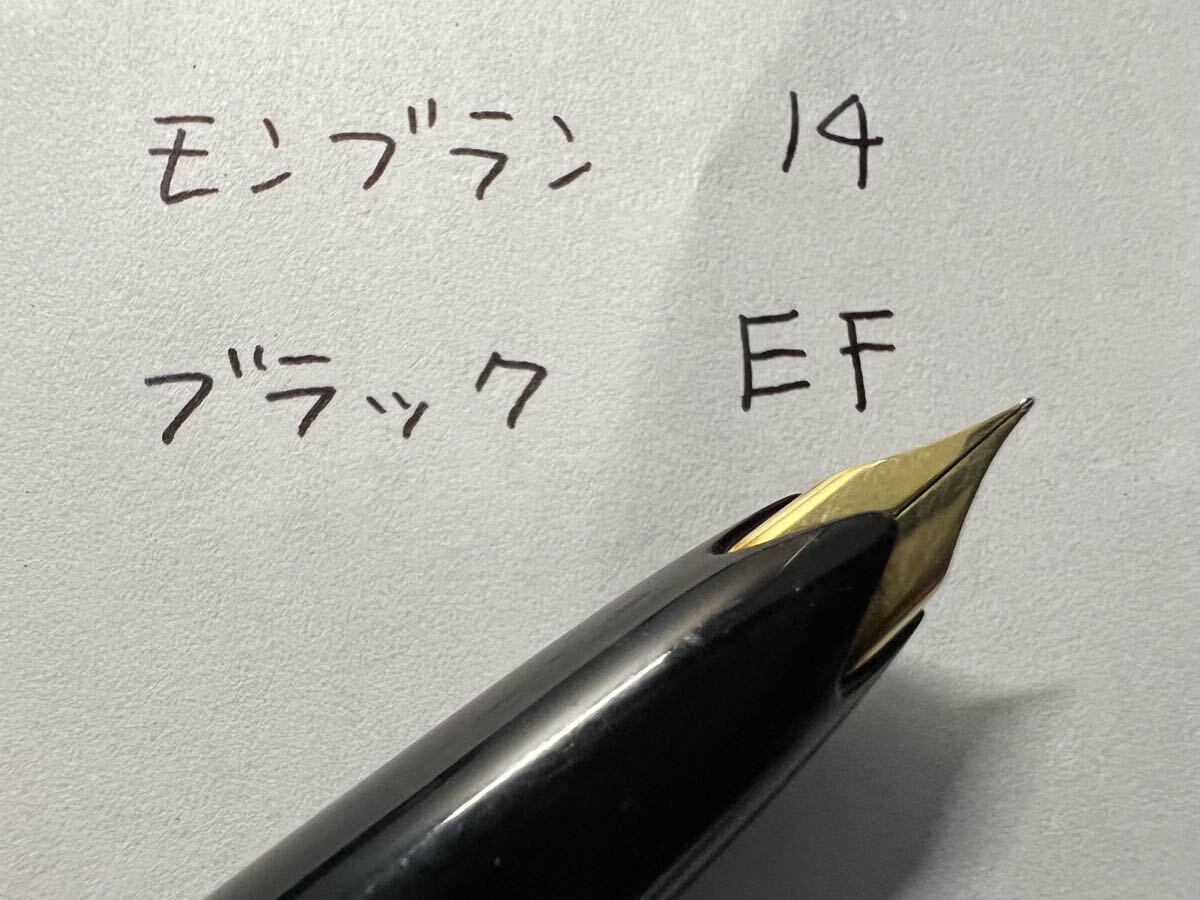 モンブラン 14
ブラック EF